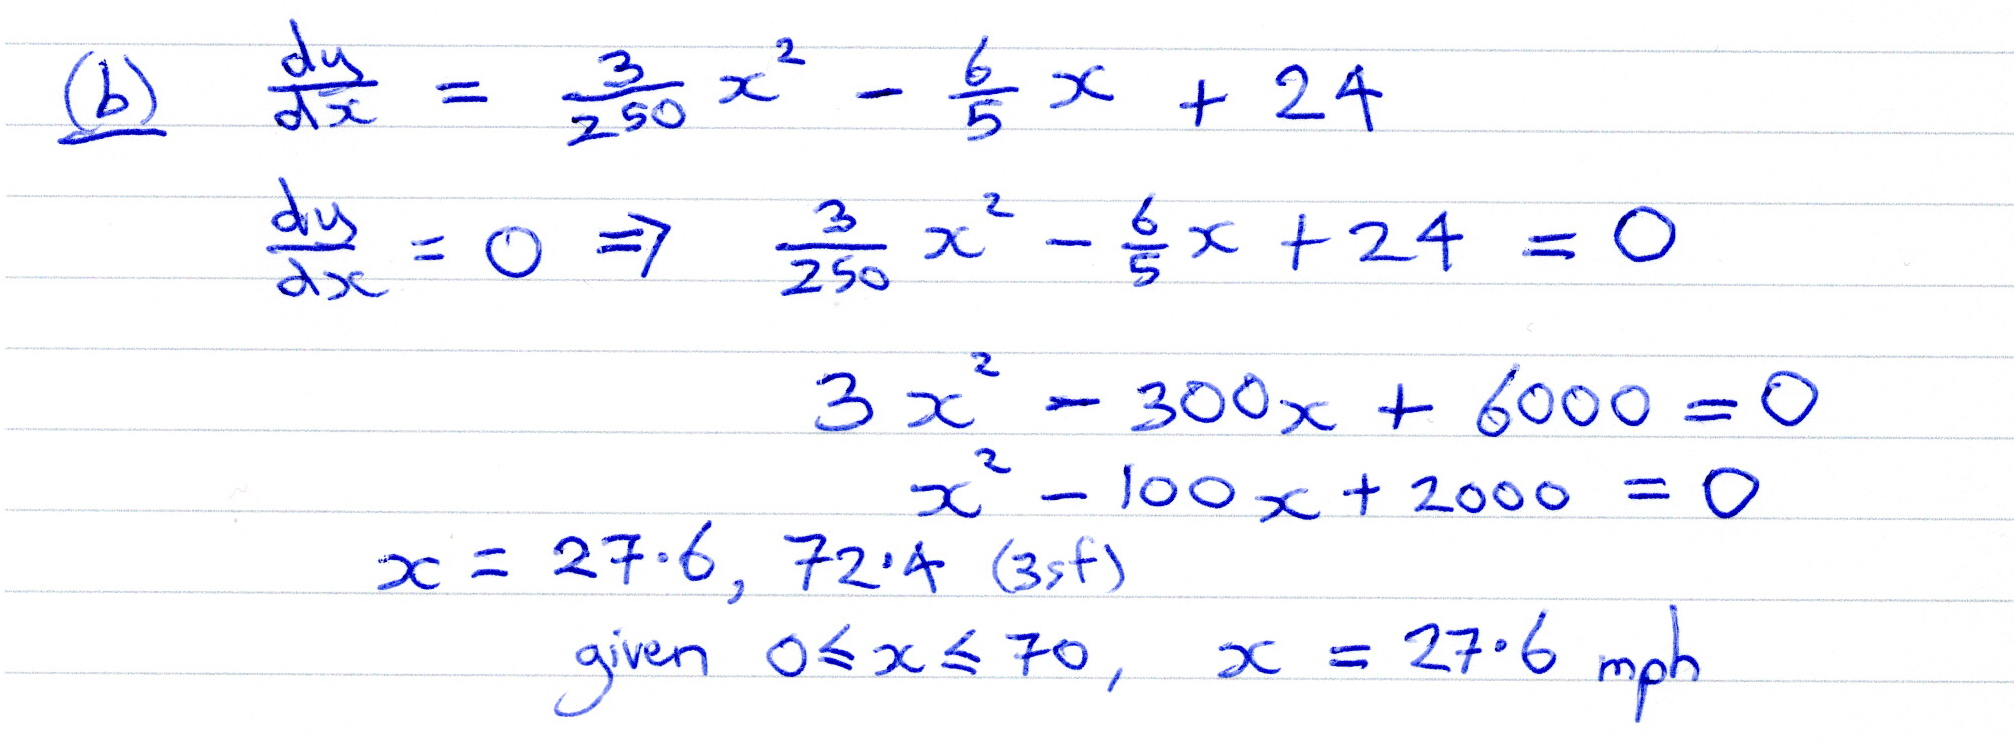 (b) dy/dx = 3/250 x² - 6/5 x + 24
dy/dx = 0 ⇒ 3/250 x² - 6/5 x + 24 = 0
3x² - 300x + 6000 = 0
x² - 100x + 2000 = 0
x = 27·6, 72·4 (3sf)
given 0 ⩽ x ⩽ 70, x = 27·6 mph